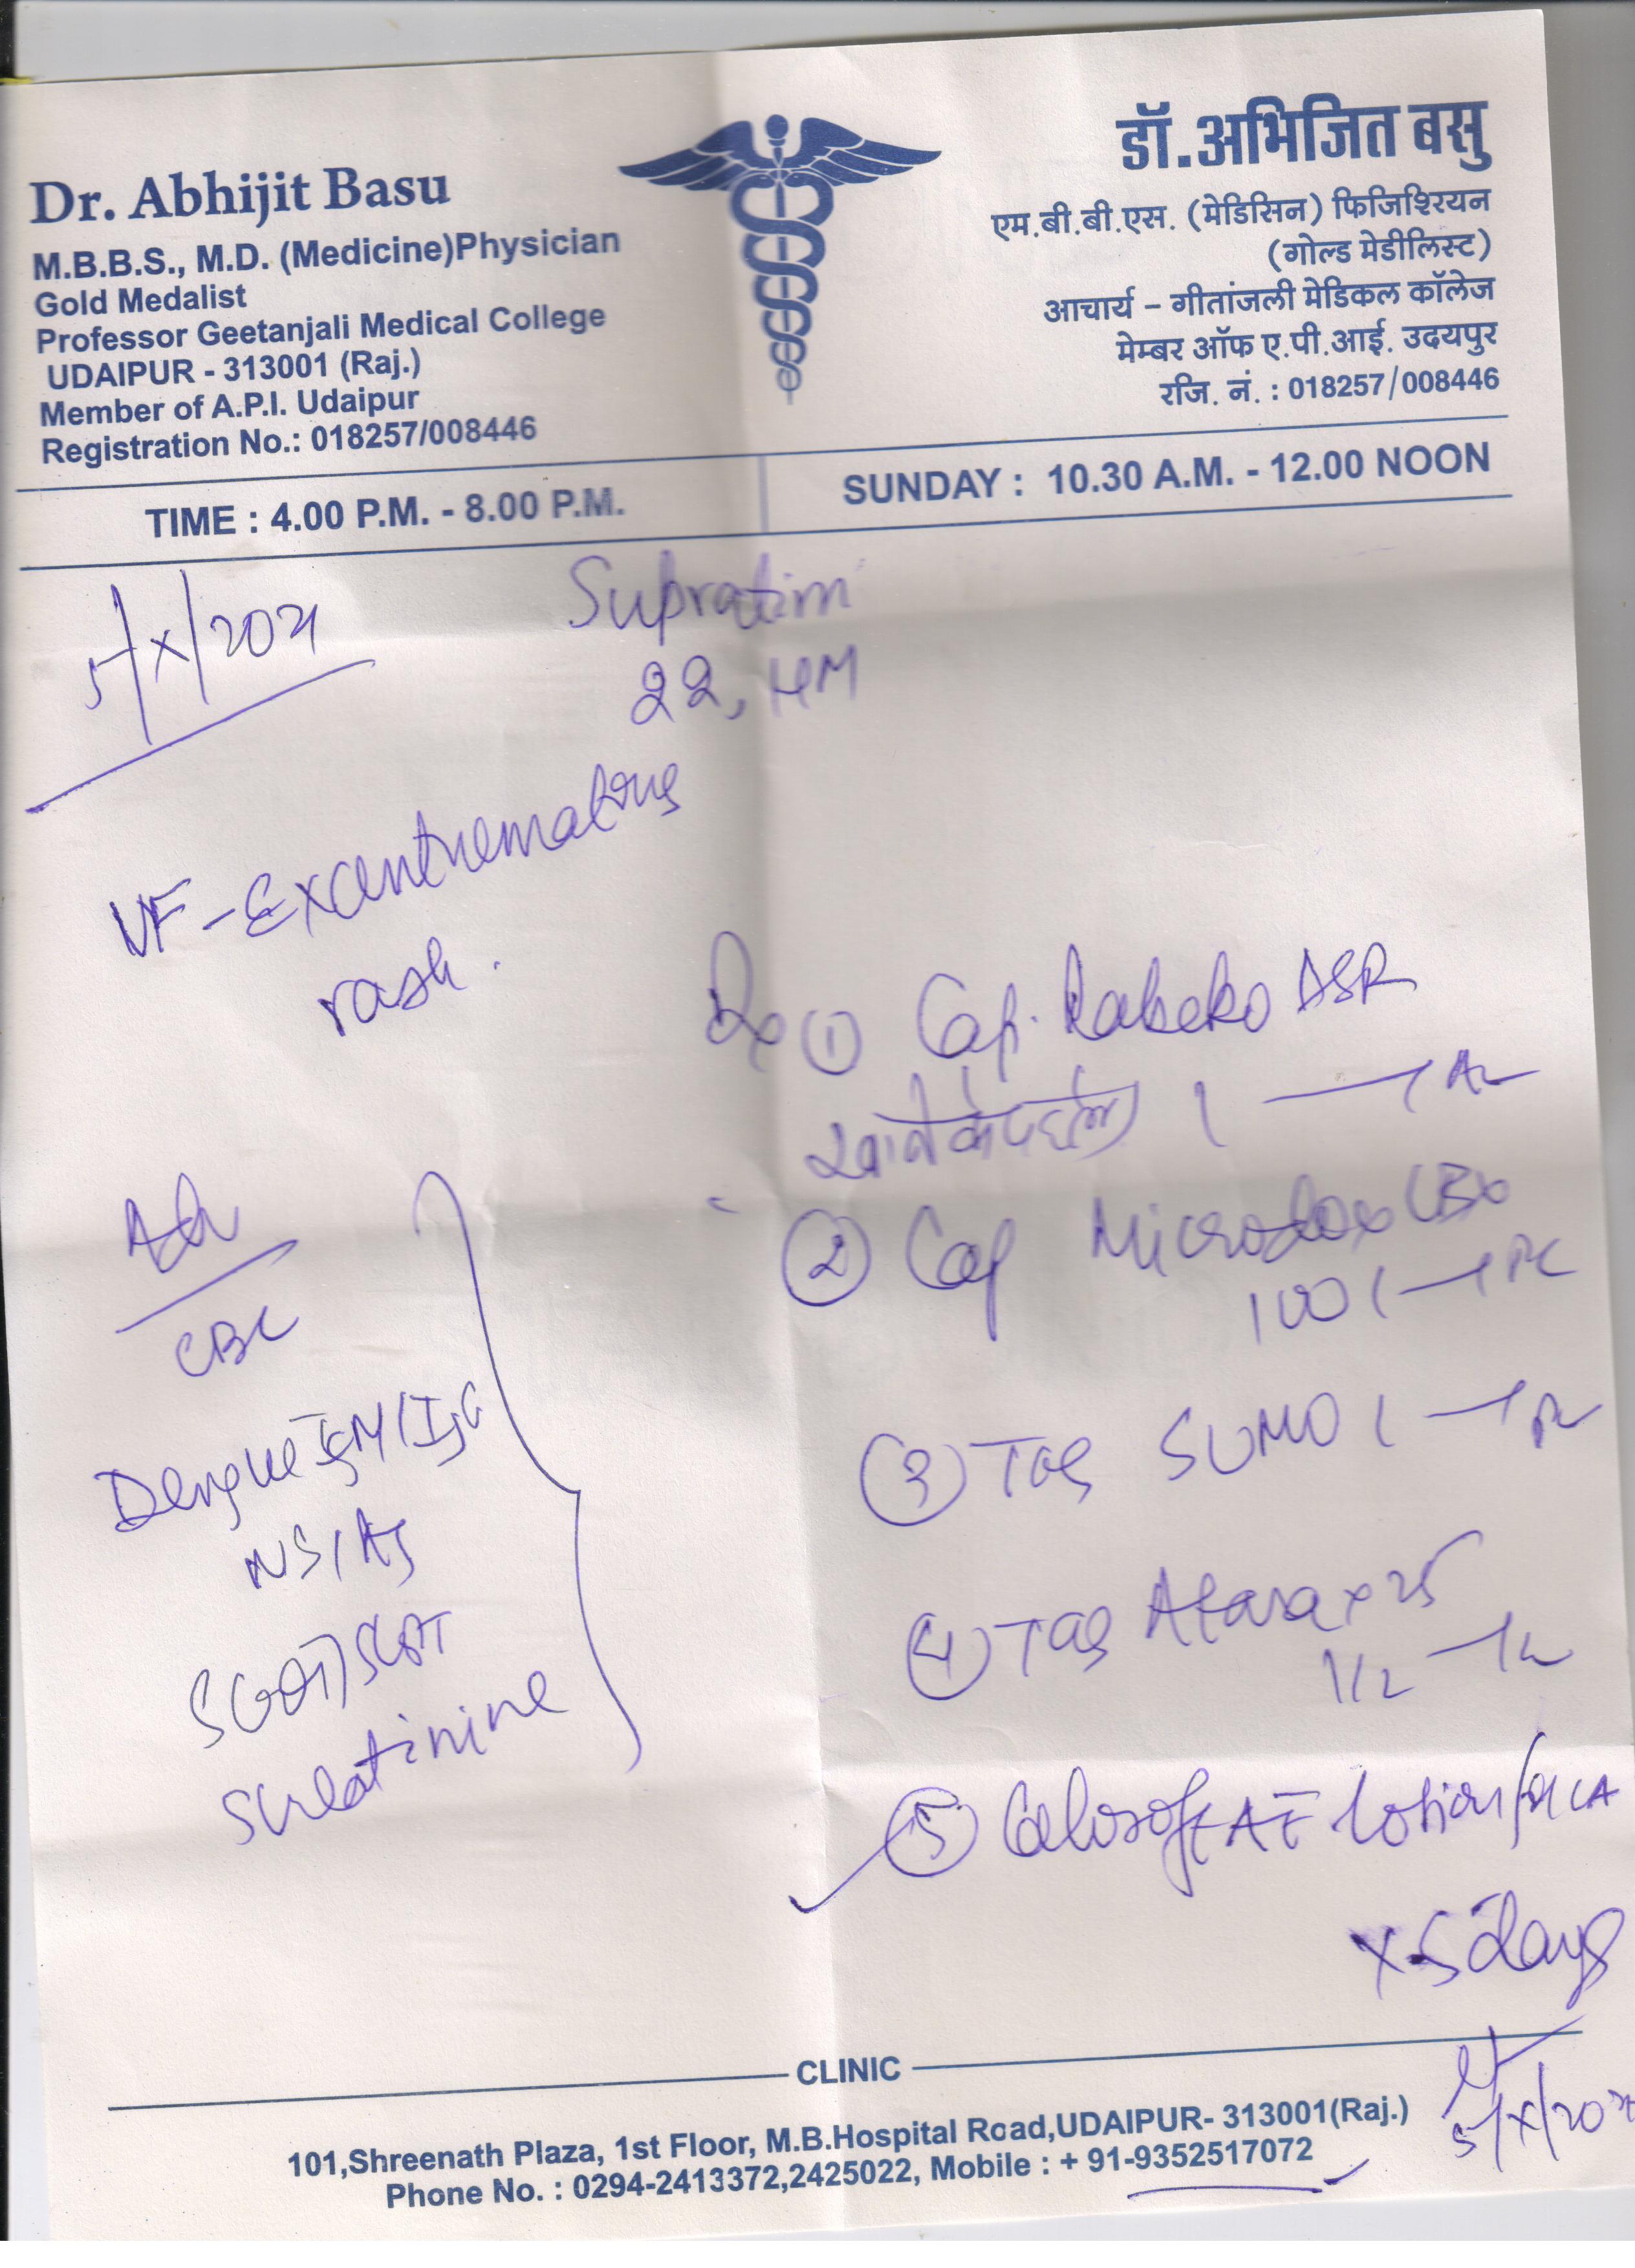 Dr. Abhijit Basu
M.B.B.S., M.D. (Medicine)Physician
Gold Medalist
Professor Geetanjali Medical College
UDAIPUR - 313001 (Raj.)
Member of A.P.I. Udaipur
Registration No.: 018257/008446
डॉ.अभिजित बसु
एम.बी.बी.एस. (मेडिसिन) फिजिश्रियन
(गोल्ड मेडीलिस्ट)
आचार्य – गीतांजली मेडिकल कॉलेज
मेम्बर ऑफ ए.पी.आई. उदयपुर
रजि. नं. : 018257/008446
TIME : 4.00 P.M. - 8.00 P.M.
SUNDAY : 10.30 A.M. - 12.00 NOON
5/X/2021
Supratim
22, HM
VF-Exanthematous
rash.
Adv
CBC
Dengue IgM/IgG
NS1Ag
SGOT/SGPT
S Creatinine
Rx ① Cap. Rabeko DSR
खाने के पहले 1 — 1 AC
② Cap Microdox LBX
100 1 — 1 PC
③ Tab SUMO 1 — 1 PC
④ Tab Atarax 25
1/2 — 1/2
⑤ Calosoft AF lotion for LA
x 5 days
5/X/2021
CLINIC
101,Shreenath Plaza, 1st Floor, M.B.Hospital Road,UDAIPUR- 313001(Raj.)
Phone No. : 0294-2413372,2425022, Mobile : + 91-9352517072